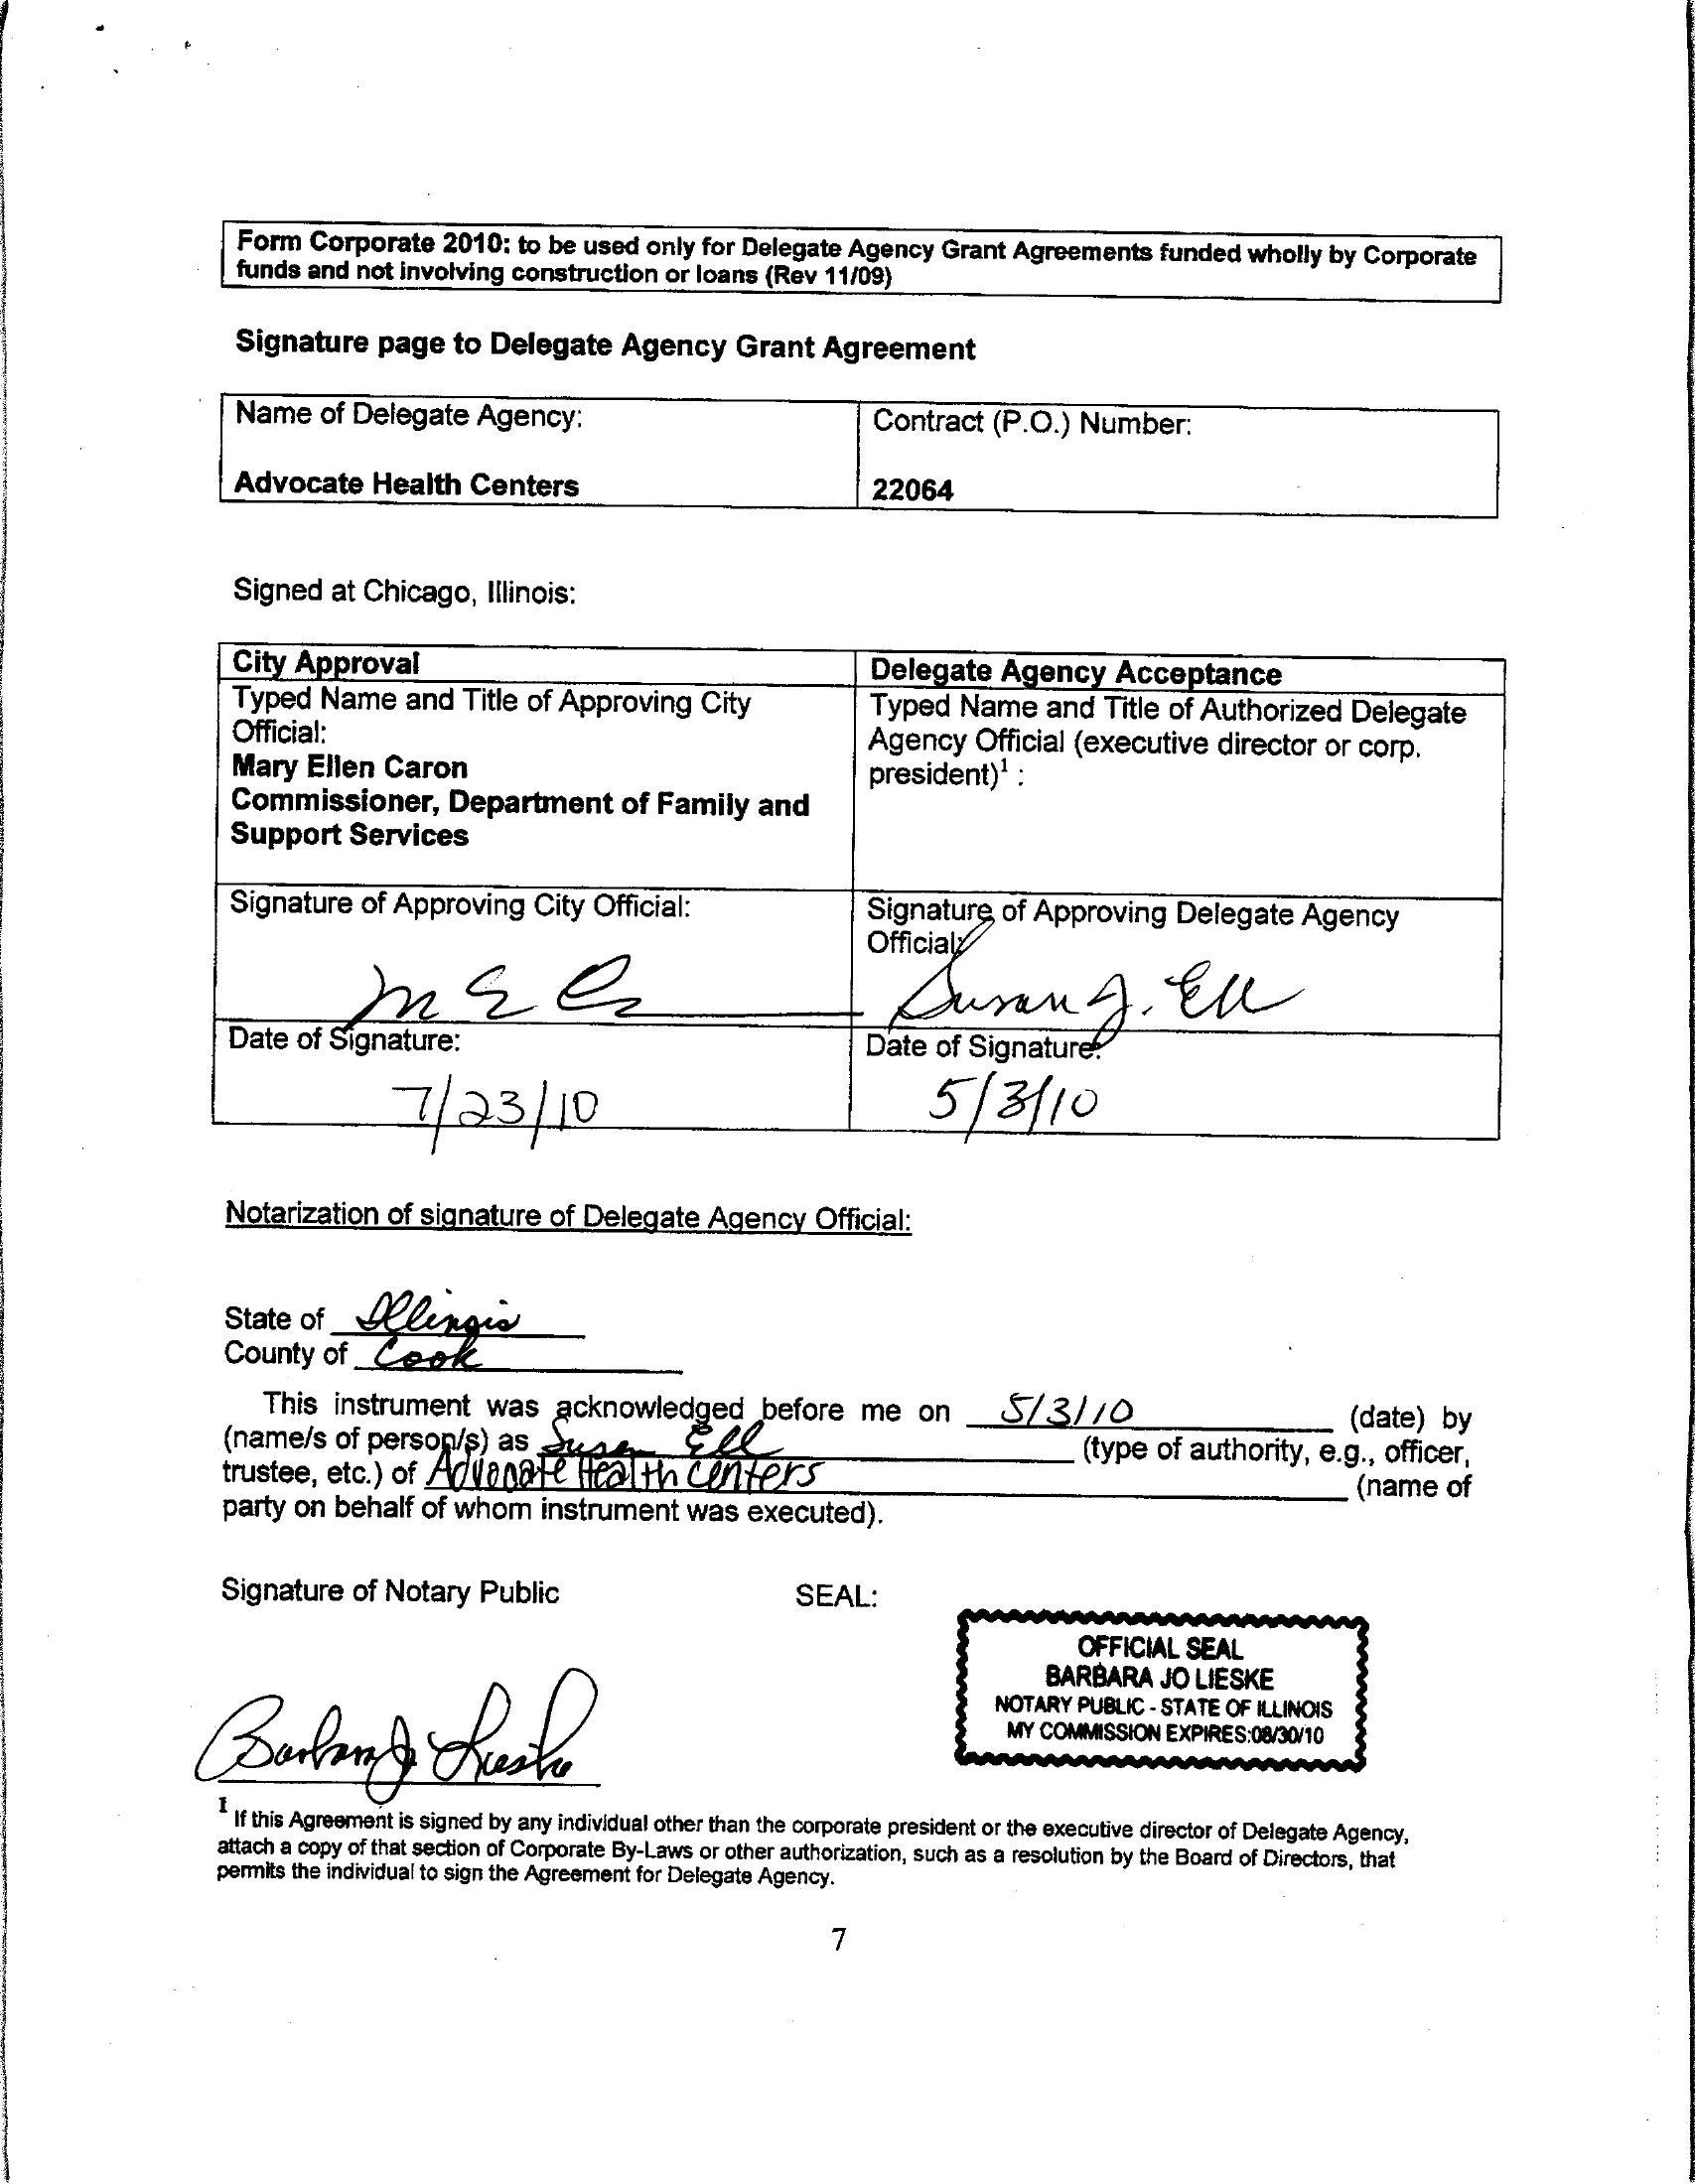 Form Corporate 2010: to be used only for Delegate Agency Grant Agreements funded wholly by Corporate
funds and not involving construction or loans (Rev 11/09)
Signature page to Delegate Agency Grant Agreement
Name of Delegate Agency:
Advocate Health Centers
Contract (P.O.) Number:
22064
Signed at Chicago, Illinois:
City Approval
Typed Name and Title of Approving City
Official:
Mary Ellen Caron
Commissioner, Department of Family and
Support Services
Delegate Agency Acceptance
Typed Name and Title of Authorized Delegate
Agency Official (executive director or corp.
president)¹ :
Signature of Approving City Official:
Signature of Approving Delegate Agency
Official:
Susan J. Ell
Date of Signature:
7/23/10
Date of Signature:
5/3/10
Notarization of signature of Delegate Agency Official:
State of Illinois
County of Cook
This instrument was acknowledged before me on 5/3/10 (date) by
(name/s of person/s) as Susan Ell (type of authority, e.g., officer,
trustee, etc.) of Advocate Health Centers (name of
party on behalf of whom instrument was executed).
Signature of Notary Public
SEAL:
OFFICIAL SEAL
BARBARA JO LIESKE
NOTARY PUBLIC - STATE OF ILLINOIS
MY COMMISSION EXPIRES:08/30/10
Barbara Jo Lieske
1 If this Agreement is signed by any individual other than the corporate president or the executive director of Delegate Agency,
attach a copy of that section of Corporate By-Laws or other authorization, such as a resolution by the Board of Directors, that
permits the individual to sign the Agreement for Delegate Agency.
7